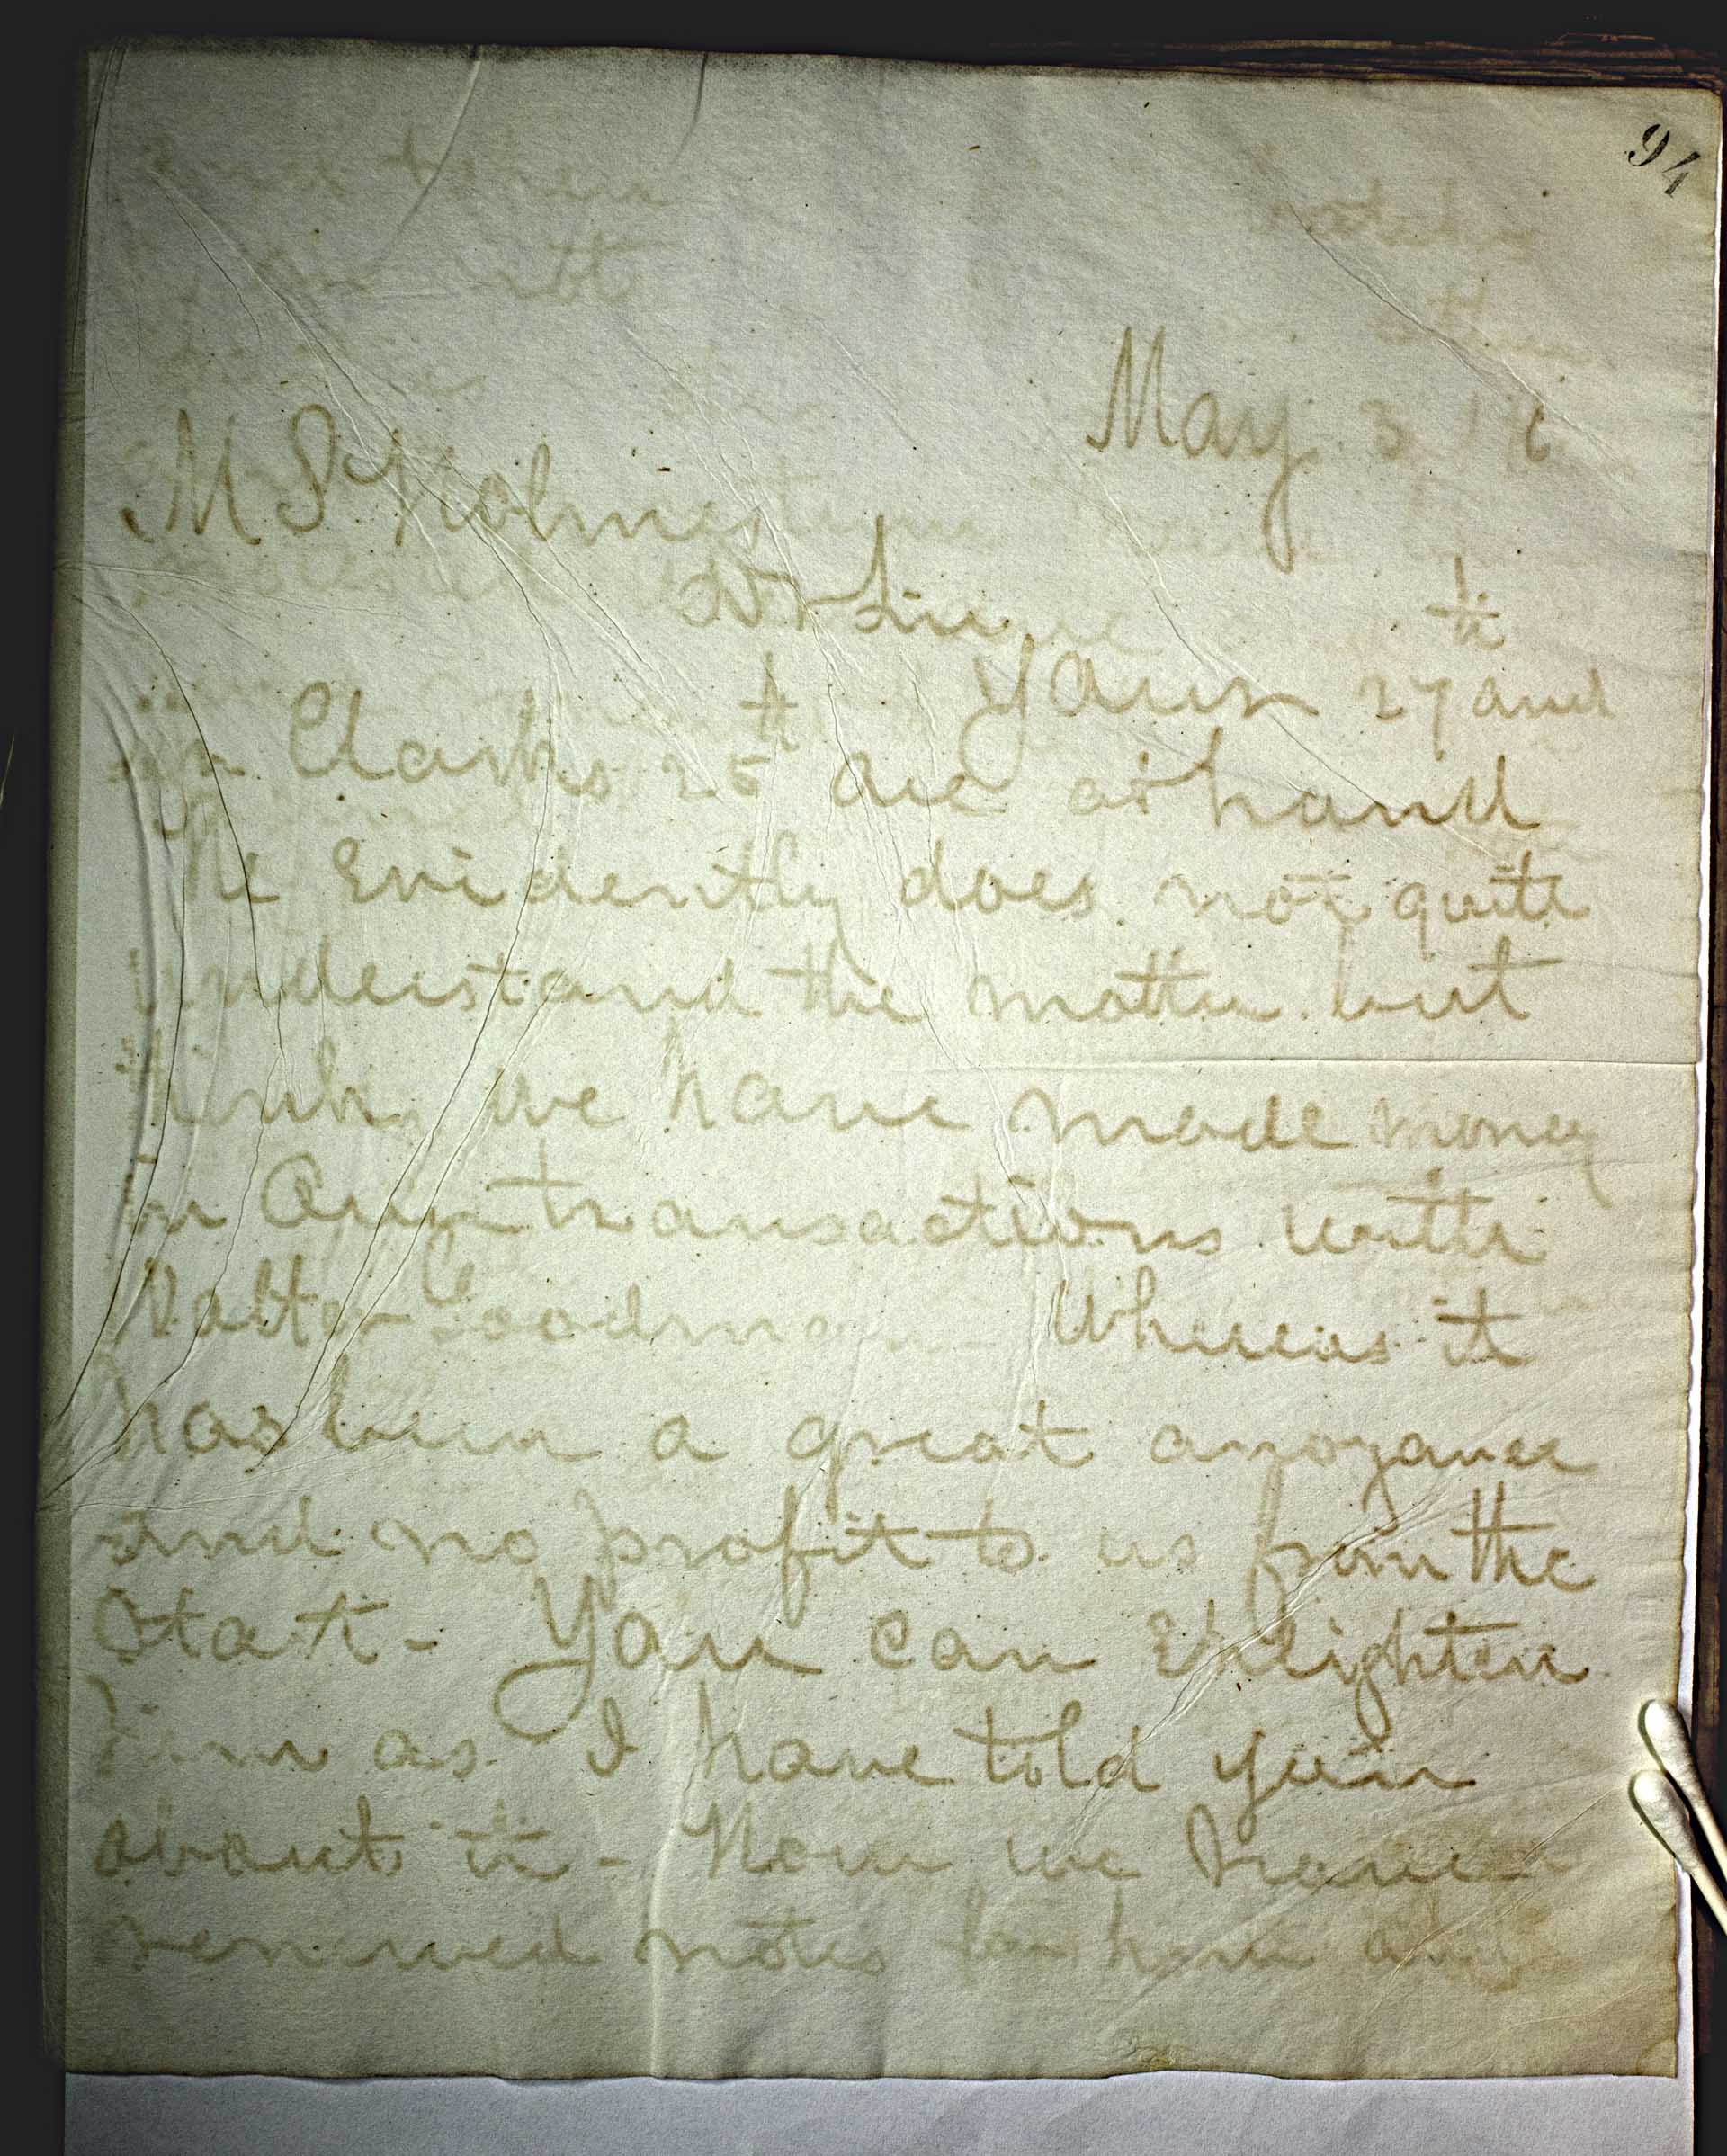 94
May 3
M S Holmes
Dr Sir
Yours 27th and
Clarks 25th are at hand
He Evidently does not quite
understand the matter but
thinks we have made money
in Any transactions with
Walter Goodman Whereas it
has been a great anoyance
and no profit to us from the
Start - You can Enlighten
him as I have told you
about it - Now we have
renewed notes for him and